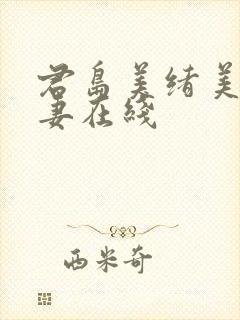 君岛美绪美
妻在线
西米奇